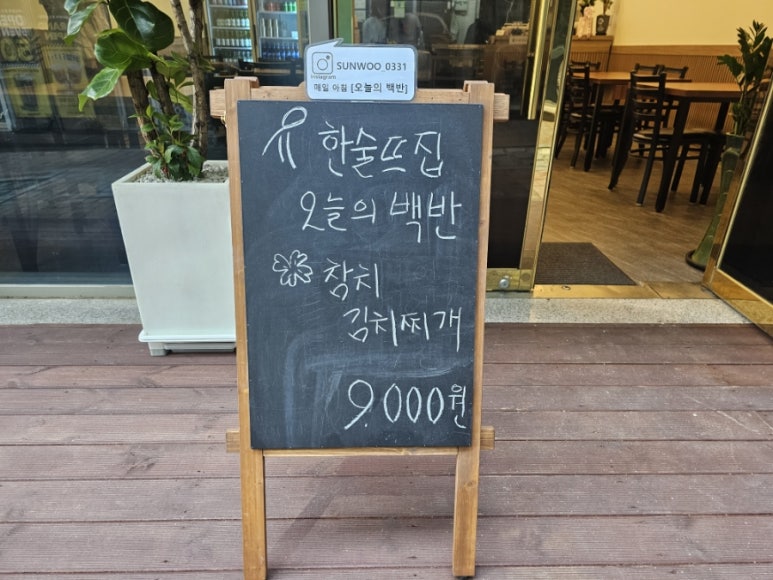 SUNWOO_0331
Instagram
매일 아침 [오늘의 백반]
한술뜨집
오늘의 백반
참치
김치찌개
9,000원